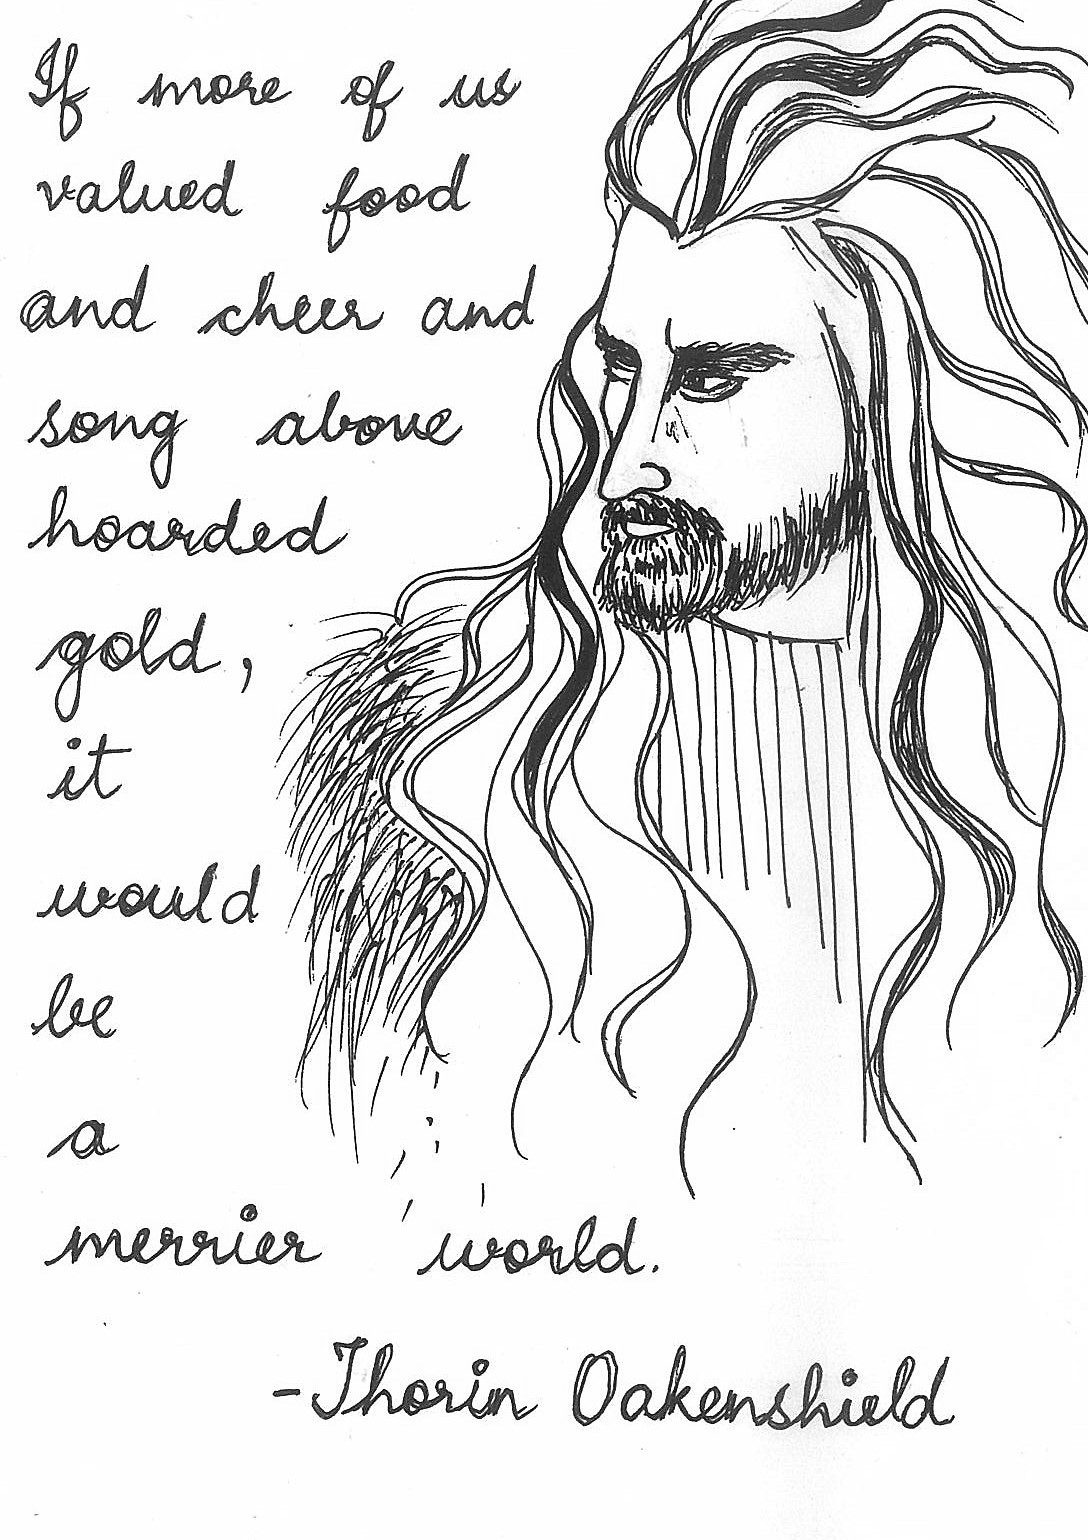 If more of us
valued food
and cheer and
song above
hoarded
gold,
it
would
be
a
merrier world.
-Thorin Oakenshield